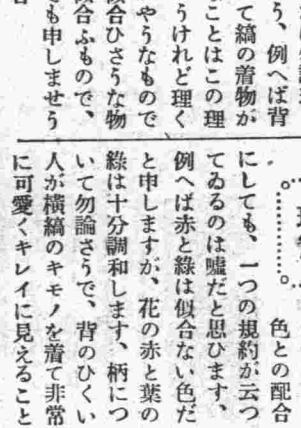 う、例へば背
て縞の着物が
ことはこの理
うけれど理く
やうなもので
似合ひさうな物
似合ふもので、
も申しませう
色との配合
にしても、一つの規約が云つ
てゐるのは嘘だと思ひます、
例へば赤と綠は似合ない色だ
と申しますが、花の赤と葉の
綠は十分調和します、柄につ
いて勿論さうで、背のひくい
人が横縞のキモノを着て非常
に可愛くキレイに見えること